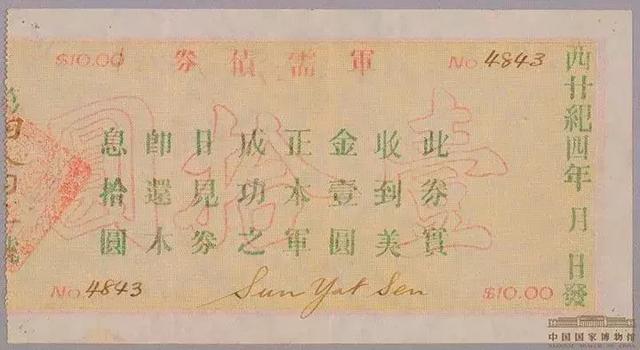 西廿紀四年 月 日發
No 4843
軍需債券
$10.00
壹拾圓
此券實
收到美
金壹圓
正本軍
成功之
日見券
即還本
息拾圓
No 4843
Sun Yat Sen
$10.00
中国国家博物馆